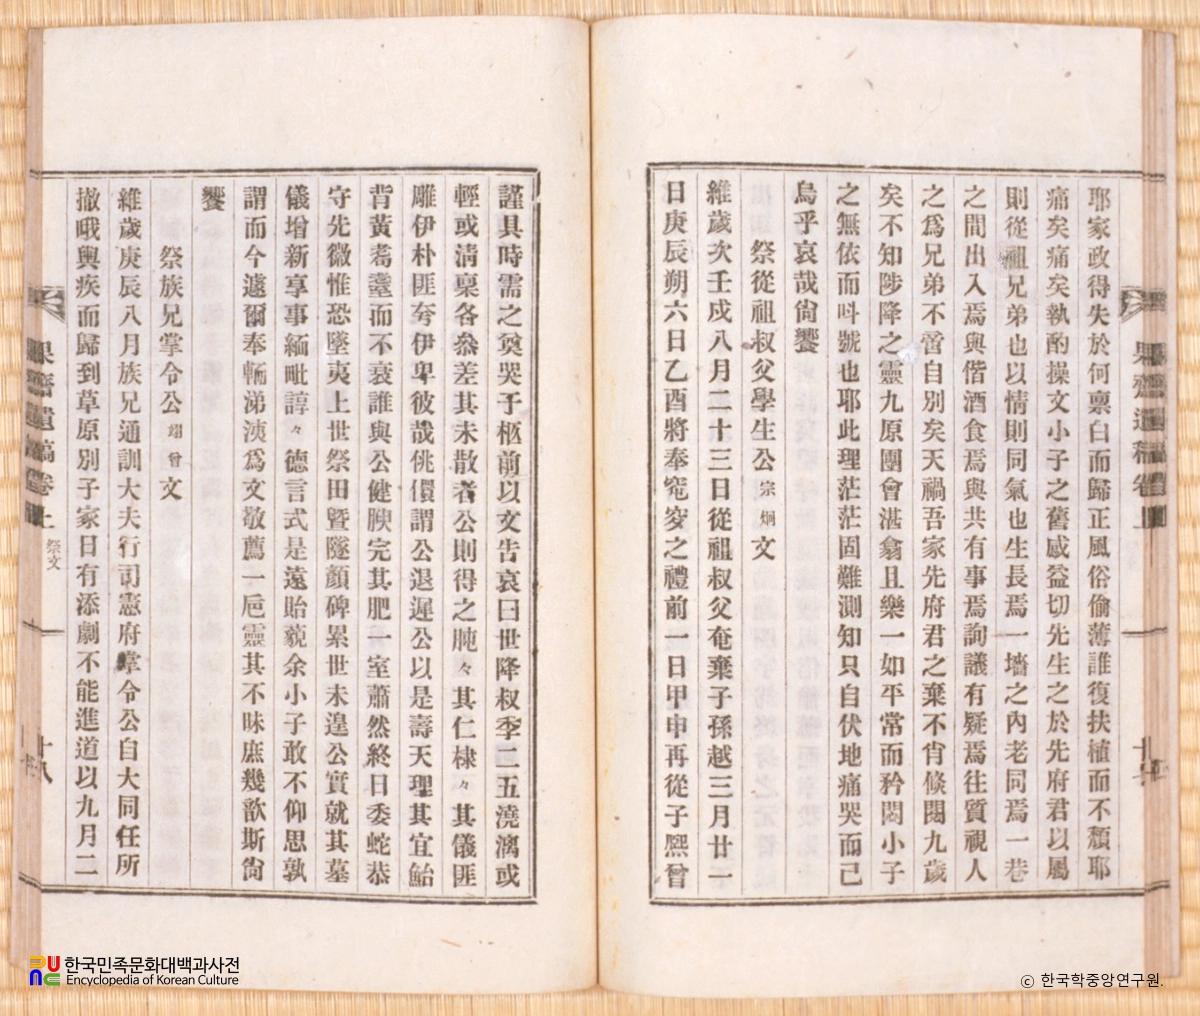 耶家政得失於何禀白而歸正風俗偷薄誰復扶植而不頹耶
痛矣痛矣執酌操文小子之舊感益切先生之於先府君以屬
則從祖兄弟也以情則同氣也生長焉一墻之內老同焉一巷
之間出入焉與偕酒食焉與共有事焉詢議有疑焉往質視人
之爲兄弟不啻自別矣天禍吾家先府君之棄不肖倏閱九歲
矣不知陟降之靈九原團會湛翕且樂一如平常而矜悶小子
之無依而呌號也耶此理茫茫固難測知只自伏地痛哭而已
烏乎哀哉尙饗
祭從祖叔父學生公宗炯文
維歲次壬戍八月二十三日從祖叔父奄棄子孫越三月廿一
日庚辰朔六日乙酉將奉窀穸之禮前一日甲申再從子熙曾
謹具時需之奠哭于柩前以文告哀曰世降叔季二五澆漓或
輕或淸稟各叅差其未散者公則得之肫々其仁棣々其儀匪
雕伊朴匪夸伊卑彼哉佻儇謂公退遲公以是壽天理其宜鮐
背黃耈耋而不衰誰與公健腴完其肥一室蕭然終日委蛇恭
守先徽惟恐墜夷上世祭田曁隧顔碑累世未遑公實就其墓
儀增新享事緬毗諄々德言式是遠貽藐余小子敢不仰思孰
謂而今遽爾奉輀涕洟爲文敬薦一巵靈其不昧庶幾歆斯尙
饗
祭族兄掌令公翊曾文
維歲庚辰八月族兄通訓大夫行司憲府掌令公自大同任所
撤哦輿疾而歸到草原別子家日有添劇不能進道以九月二
果齋遺稿卷上
祭文
十八
한국민족문화대백과사전
Encyclopedia of Korean Culture
ⓒ 한국학중앙연구원.